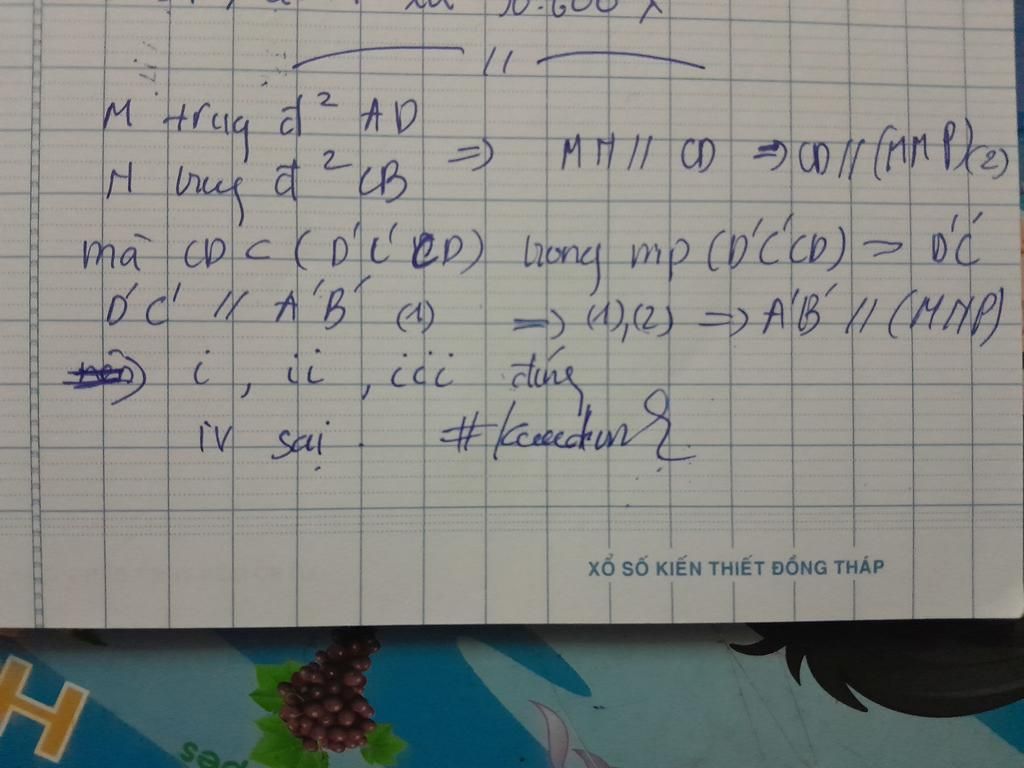 //
M trug đ² AD
N trug đ² CB
=> MN // CD => CD // (MNP) (2)
mà CD ⊂ (D'C'CD) trong mp (D'C'CD) => D'C'
D'C' // A'B' (1) => (1),(2) => A'B' // (MNP)
=> i, ii, iii đúng
iv sai.
XỔ SỐ KIẾN THIẾT ĐỒNG THÁP
H